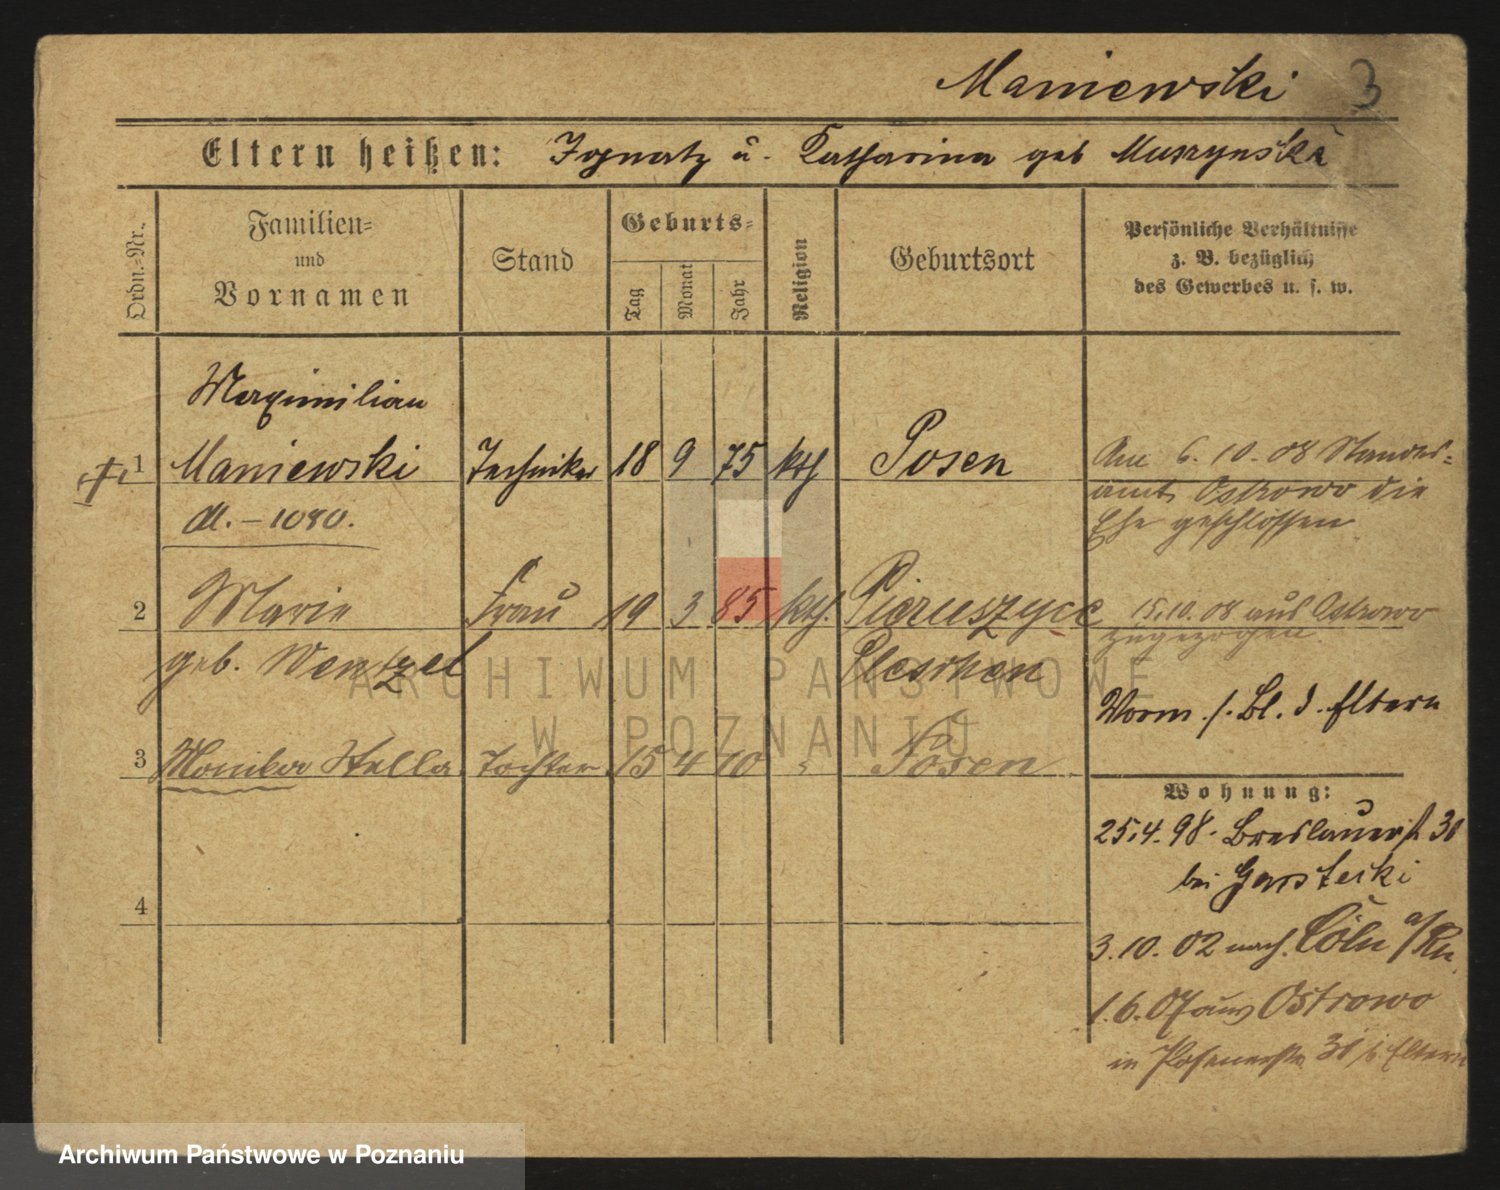 Maniewski 3
Eltern heißen: Ignatz u. Katharina geb Muszynska
Ordn.-Nr.
Familien-
und
Vornamen
Stand
Geburts-
Tag
Monat
Jahr
Religion
Geburtsort
Persönliche Verhältnisse
z. B. bezüglich
des Gewerbes u. s. w.
Maximilian
1 Maniewski Techniker 18 9 75 kth Posen
M. - 1080.
Am 6. 10. 08 Standes-
amt Ostrowo die
Ehe geschlossen
2 Marie Frau 19 3 85 kth. Pieruszyce
geb. Wentzel Pleschen
15.10.08 aus Ostrowo
zugezogen.
Vorm. s. Bl. d. Eltern
3 Monika Stella Tochter 15 4 10 " Posen
4
Wohnung:
25.4.98. Breslauerst 38
bei
3.10.02 nach Cöln a/Rh.
1.6.07 aus Ostrowo
in Posenerstr 38 b. Eltern
ARCHIWUM PAŃSTWOWE
W POZNANIU
Archiwum Państwowe w Poznaniu